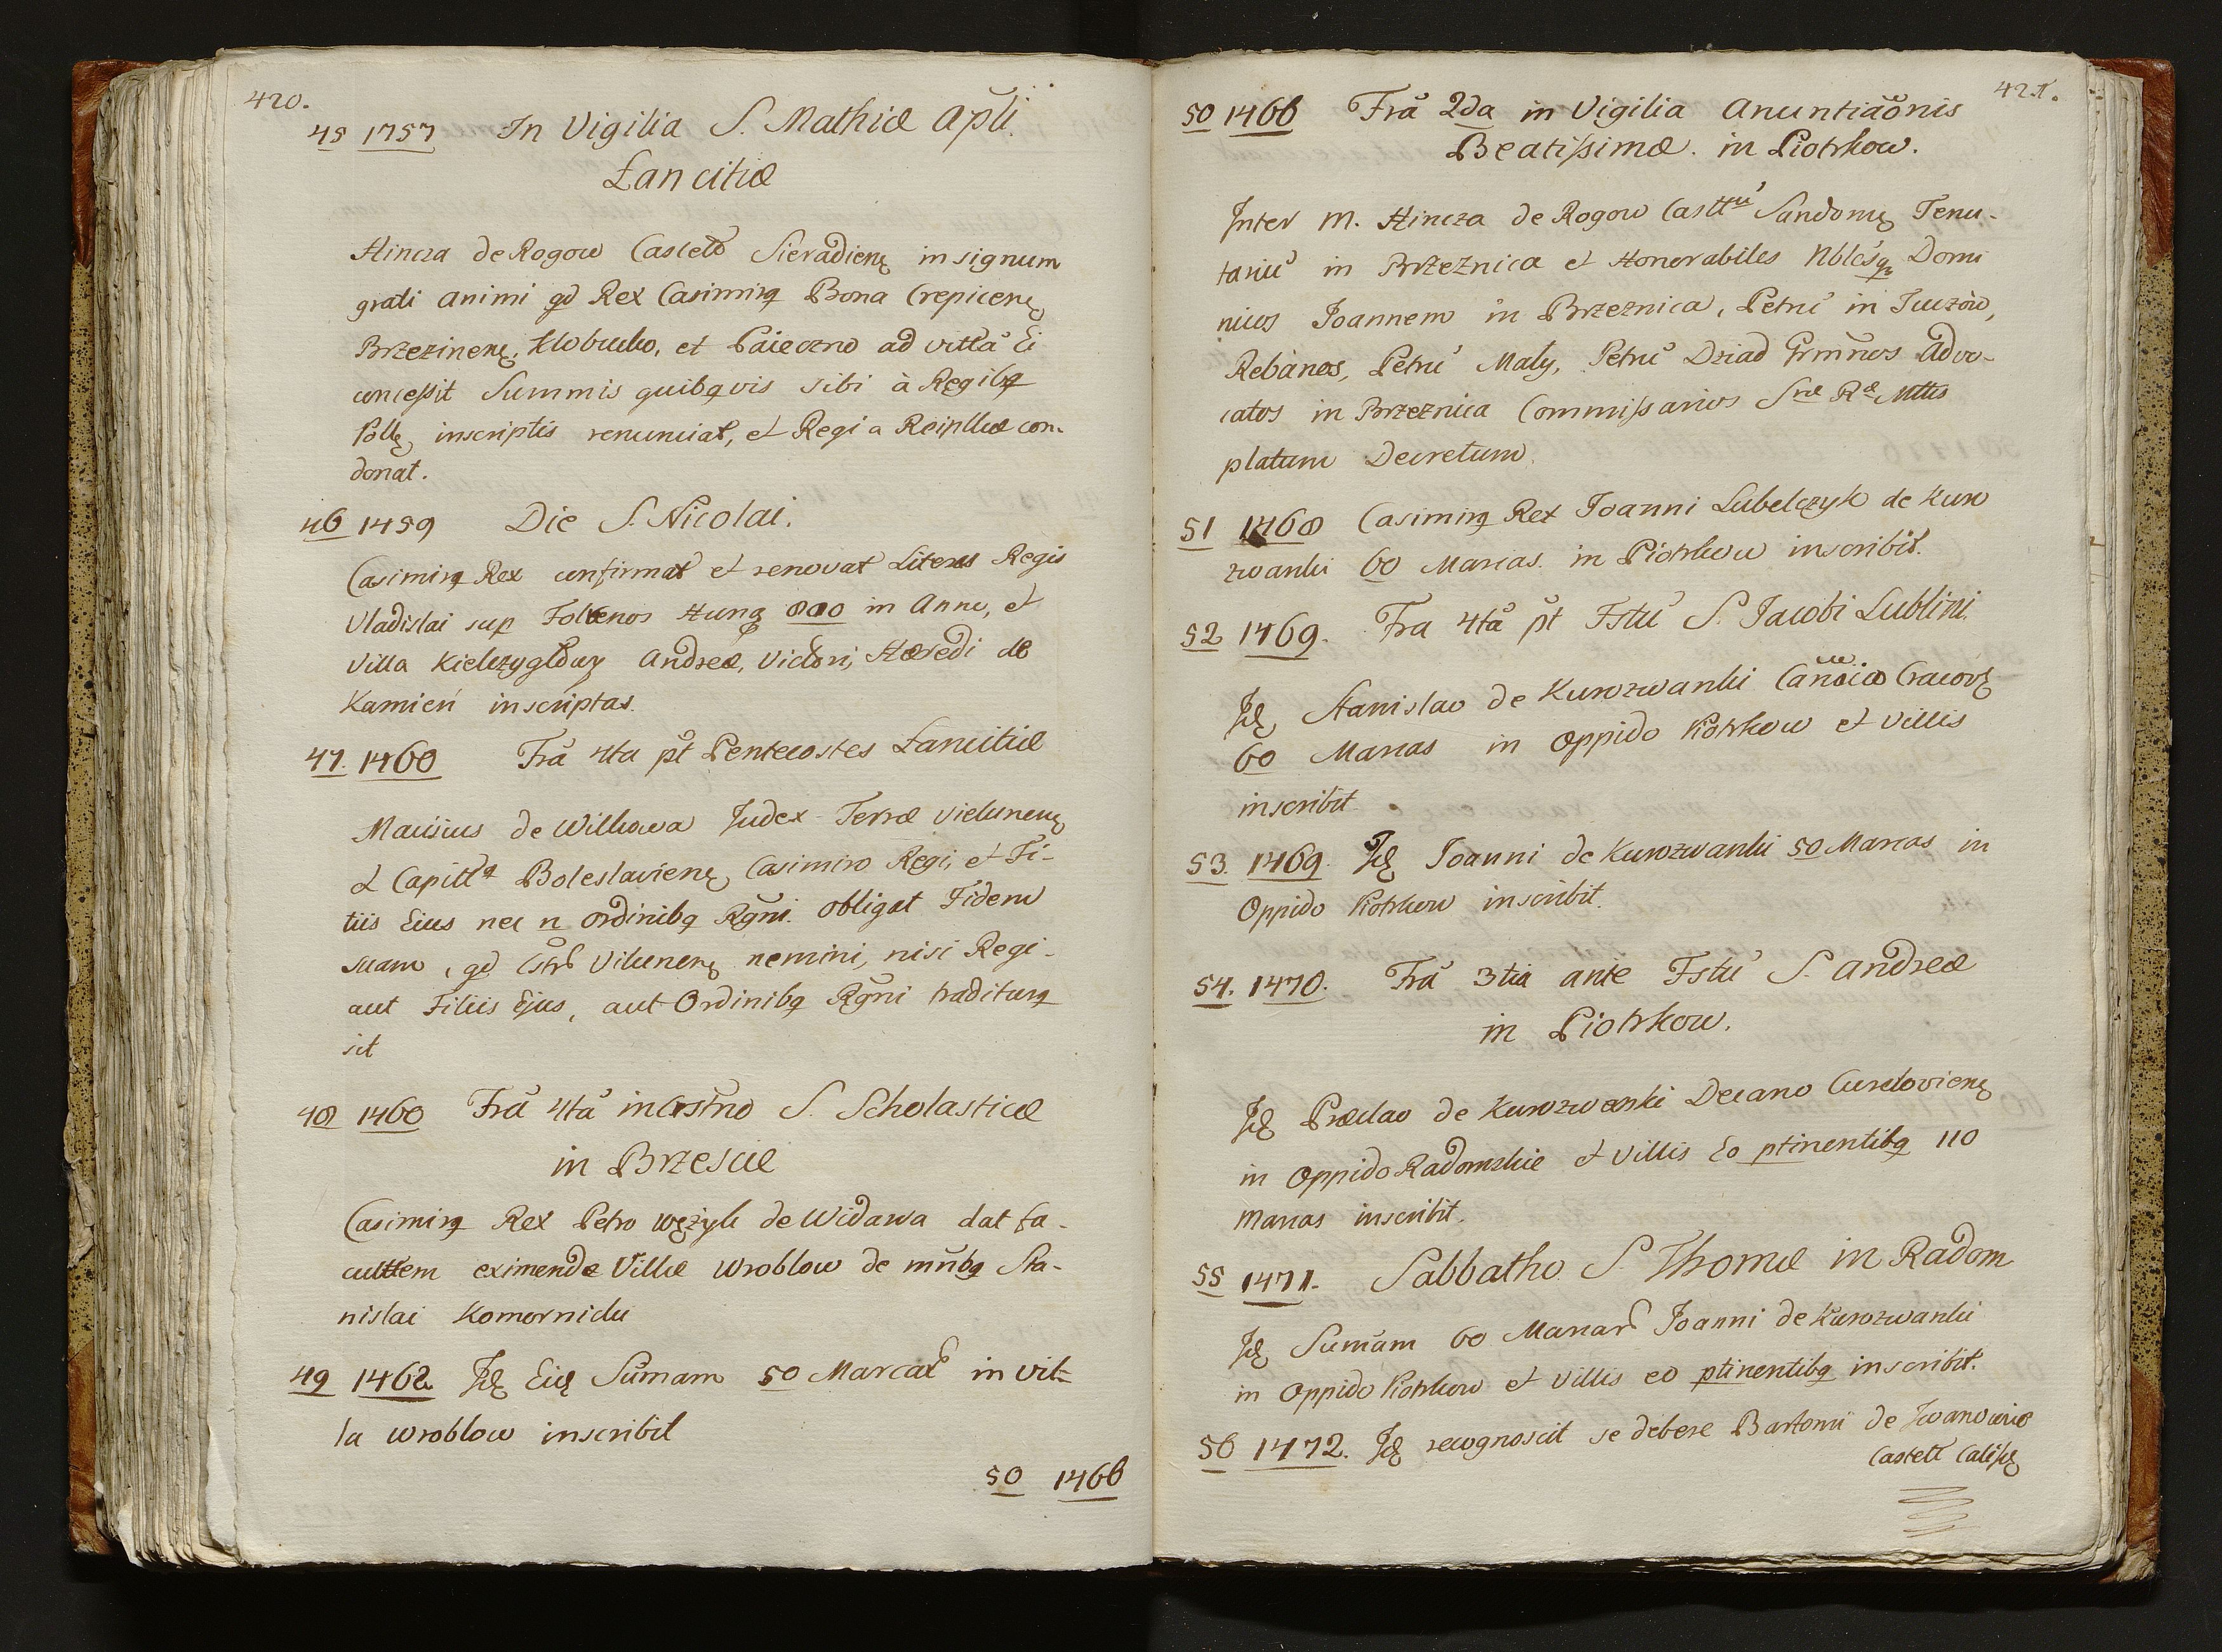 420.
45 1757 In Vigilia S. Mathiæ Apli.
Łancitiæ
Hincza de Rogow Castell Sieradiens in signum
grati animi qd Rex Casimirq Bona Crepicens
Brzezinens, Kłobucko, et Paieczno ad vitta Ei
concessit Summis quibqvis sibi à Regibq
Polle inscriptis renunciat, et Regi a Reipllicæ con-
donat.
46 1459 Die S. Nicolai.
Casimirq Rex confirmat et renovat Literas Regis
Vladislai sup Folenos Hung 800 in Anno, et
Villa Kielczygłowy Andreæ, Victori, Hæredi de
Kamień inscriptas.
47. 1460 Frā 4ta pt Pentecostes Łancitiæ
Maciisius de Wilkowa Judex Terræ Vielunens
et Capittq Boleslaviens Casimiro Regi, et Fi-
liis Eius nec n Ordinibq Rgni. obligat Fidem
suam, qd Cstr Vilunens nemini, nisi Regi-
aut Filiis Ejus, aut Ordinibq Rgni traditurq
sit
48 1460 Frā 4tā inCrstno S. Scholasticæ
in Brzesciæ
Casimirq Rex Petro Wężyk de Widawa dat fa-
culttem eximendæ Villæ Wroblow de mnbq Sta-
nislai Komornicku
49 1462 Id Eid Sumam 50 Marcar in Vil-
la Wroblow inscribit
50 1466
421.
50 1466 Frā 2da in Vigilia Anuntiaonis
Beatissimæ. in Piotrkow.
Inter M. Hincza de Rogow Casttu Sandoms Tenu-
tariu in Brzeznica et Honorabiles Nblesq Domi
nicos Joannem in Brzeznica, Petru in
Rebanos, Petru Mały, Petru Dziad Grmnos Advo-
catos in Brzeznica Commissarios Sræ Ræ Mttis
platum Decretum.
51 1468 Casimirq Rex Joanni Lubelczyk de Kuro
zwanki 60 Marcas. in Piotrkow inscribit.
52 1469. Fra 4tā pt Fstu S. Jacobi Lublini.
Id Stanislao de Kurozwanki Canoico Cracovs
60 Marcas in Oppido Piotrkow et Villis
inscribit
53. 1469. Id Joanni de Kurozwanki 50 Marcas in
Oppido Piotrkow inscribit.
54. 1470. Frā 3tia ante Fstu S. Andreæ
in Piotrkow.
Id Præclao de Kurozwanki Decano Cureloviens
in Oppido Radomskie et Villis Eo ptinentibq 110
Marcas inscribit.
55 1471. Sabbatho S. Thomæ in Radom
Id Sumam 60 Marcar Joanni de Kurozwanki
in Oppido Piotrkow et Villis eo ptinentibq inscribit.
56 1472. Id recognoscit se debere Bartomi de Iwanowic
Castell Caliss